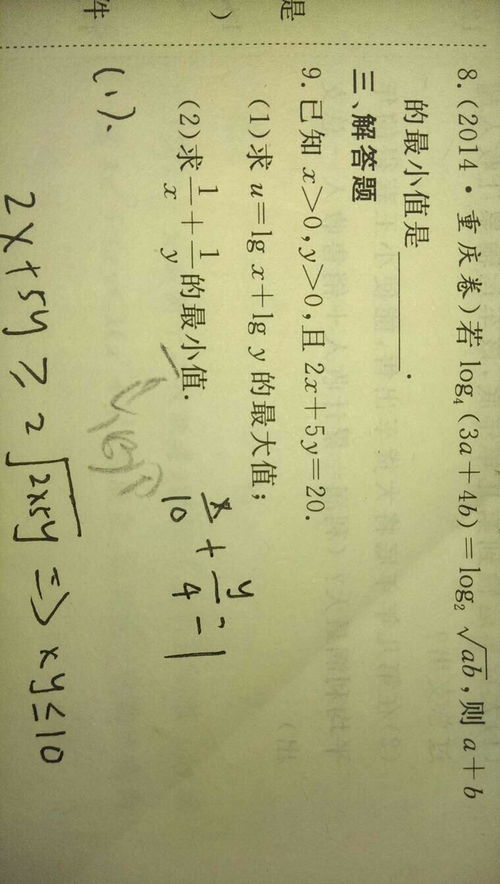 是
)
件
8.(2014·重庆卷)若 log₄(3a+4b)=log₂√ab,则 a+b
的最小值是________.
三、解答题
9.已知 x>0,y>0,且 2x+5y=20.
(1)求 u=lg x+lg y 的最大值;
(2)求 1/x + 1/y 的最小值.
x/10 + y/4 = 1
(1)、
2x+5y ≥ 2√2x5y ⇒ xy≤10